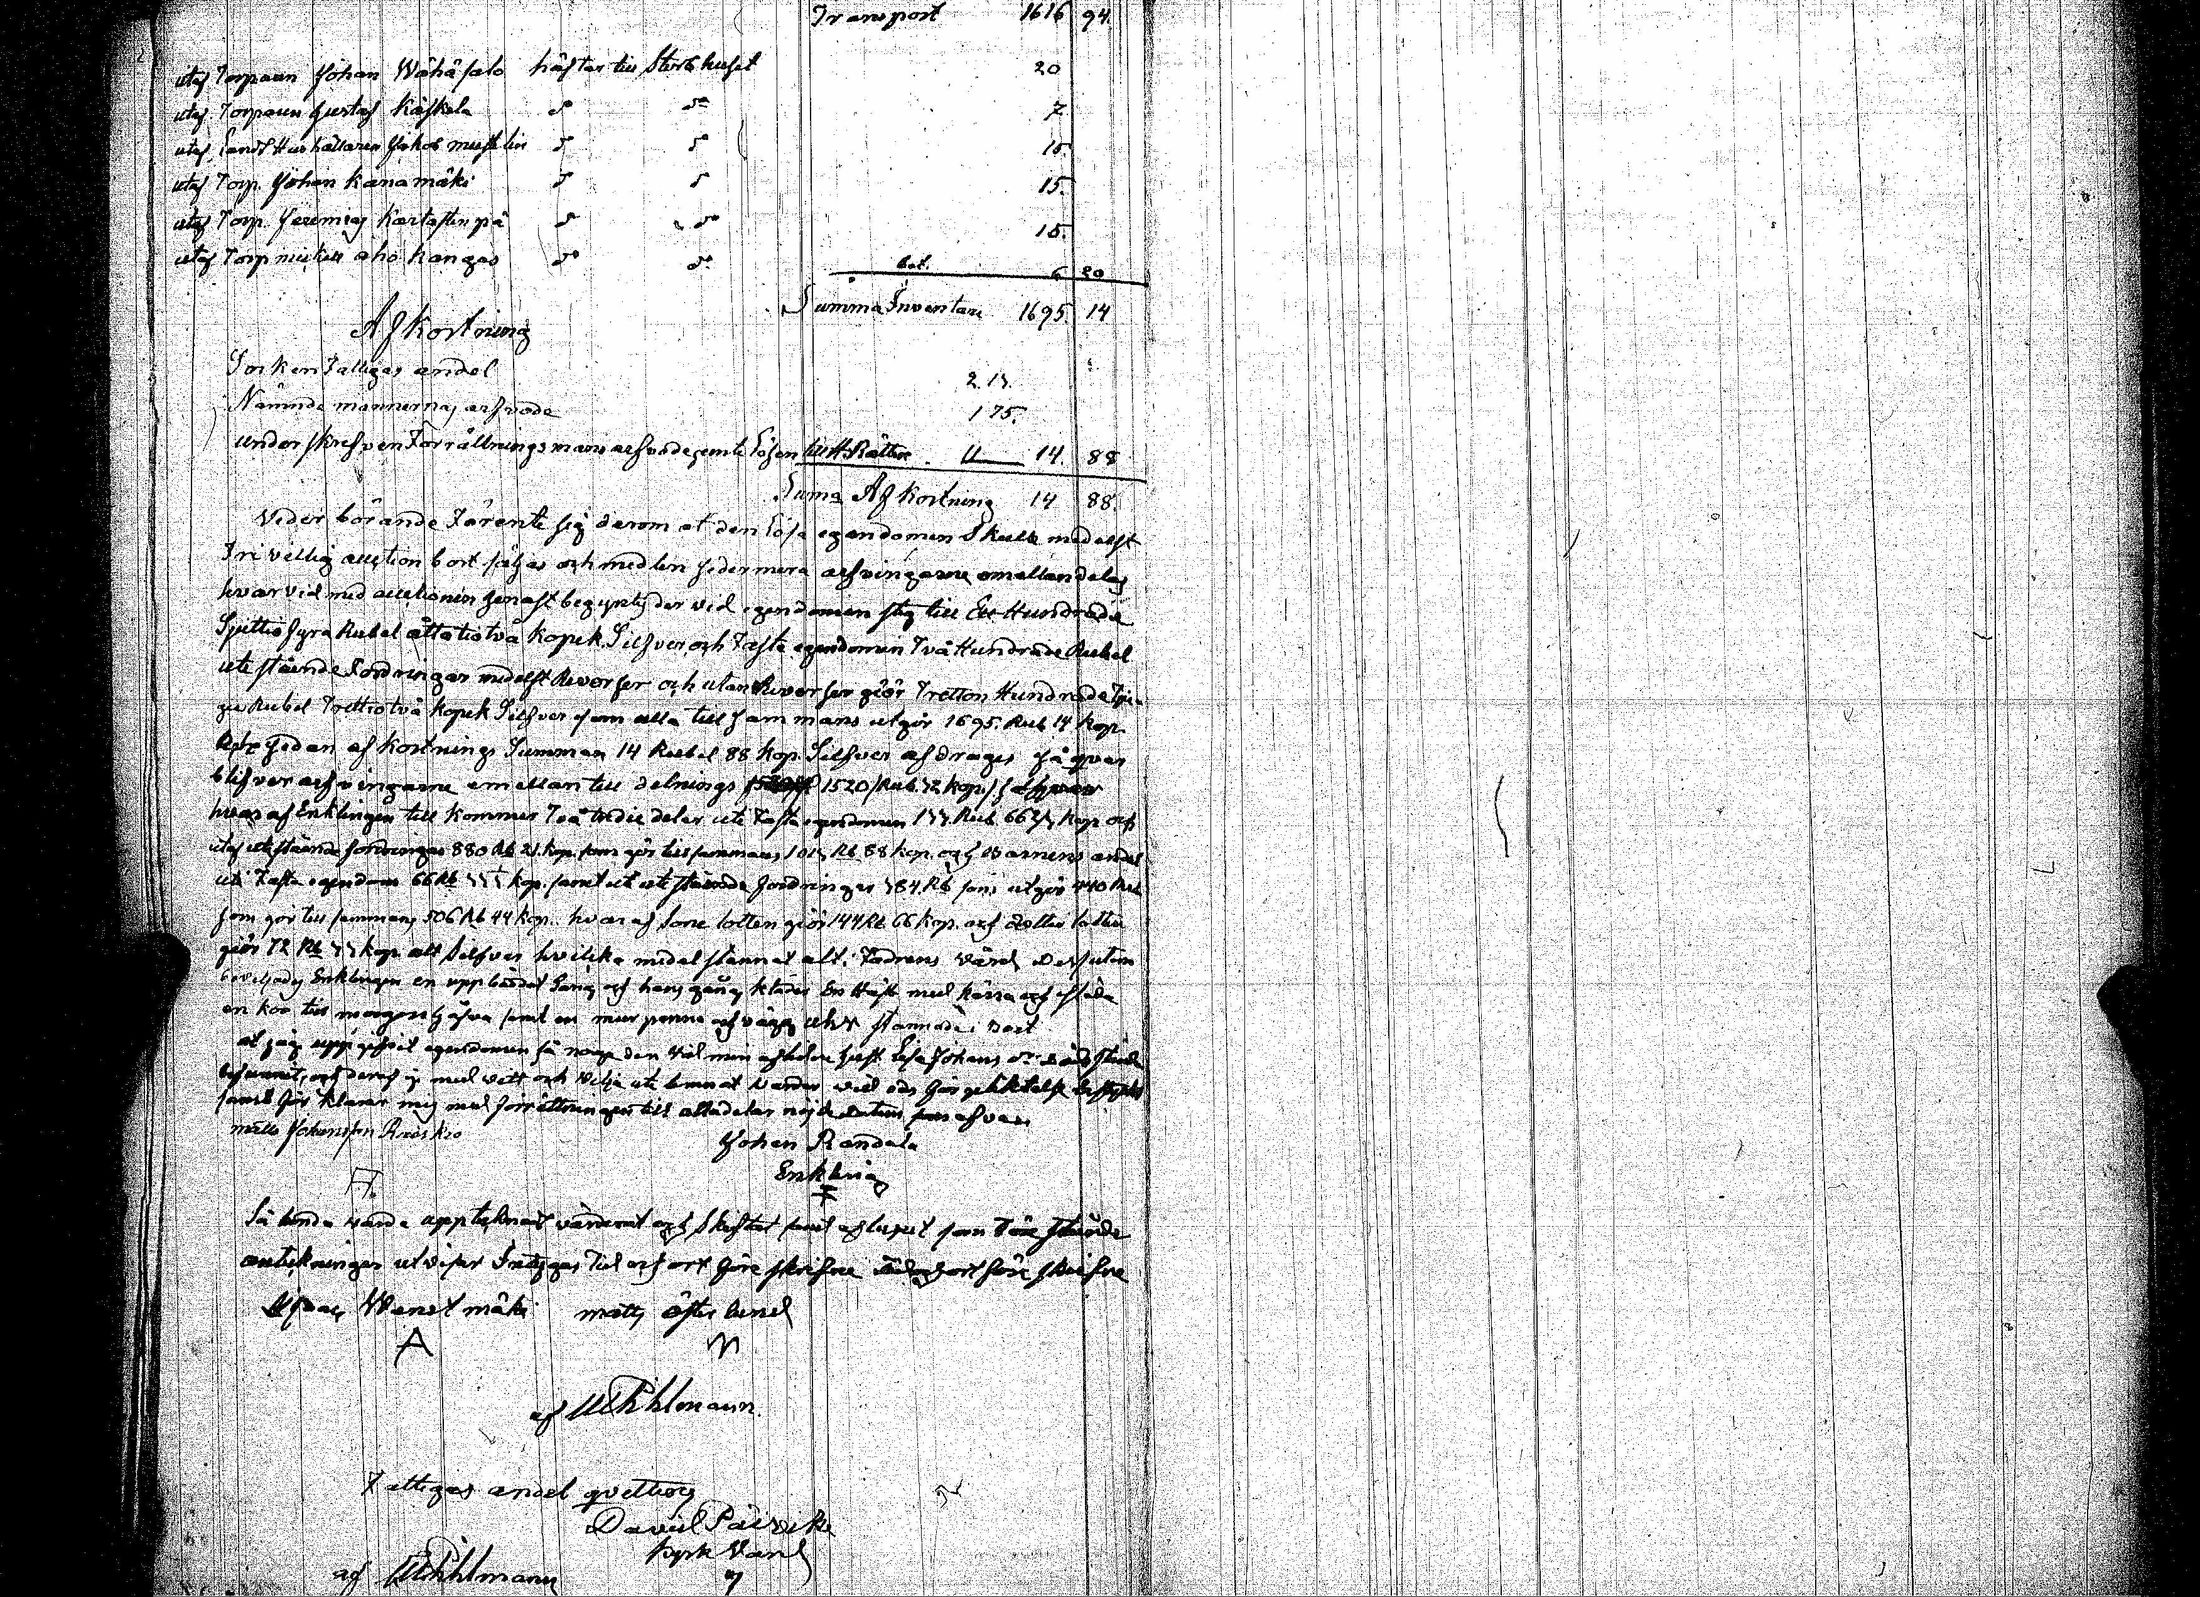 Transport 1616 94.
utaf Torparen Johan Wähäsalo häftar till Sterbhuset 20
utaf Torparen Gustaf Käskela do do 7
utaf Landt Hushållaren Jakob do do 15.
utaf Torp. Johan Kanamäki do do 15.
utaf Torp. Jeremias do do 15.
utaf Torp Mickell ahokangas do do 6 20
Summa Inventari 1695. 14
Afkortning
Sockens Fattigas andel 2.13.
Nämndemännernas arfvode 175.
underskrefven Förrättningsmans arfvode jemte Lösen till H. Rätten 11 14. 88
Suma Afkortning 14 88.
Vederbörande Förente sig derom at den Lösa egendomen Skulle medelst
Frivillig auction bortsäljas och medlen sedermera arfvingarne emellan delas
hvarvid med auctionen genast begyntes der vid egendomen steg till Ett Hundrade
Sjuttiofyra Rubel åttatiotvå kopek Silfver, och Fasta egendomen Två Hundrade Rubel
utestående Fordringar medelst Reverser och utan Reverser giör Tretton Hundrade
Rubel Trettiotvå kopek Silfver som alla till sammans utgör 1695. Rub 14 kop.
sedan afkortnings Summan 14 Rubel 88 kop. Silfver afdrages så qvar
blifver arfvingarne emellan till delnings 1520 Rub. 72 kop.
hvar af Enklingen till kommer Två tridie delar uti Fasta egendomen 133 Rub. 66 2/3 kop och
utaf utestående fordringar 880 Rb 21 kop. som gör till sammans 1013 Rb 88 kop. och Barnens andel
uti Fasta egendom 66 Rb kop. samt ut utestående fordringar Rb som utgör 440 Rub
som gör till sammans 506 Rb 44 kop. hvar af Sone lotten giör 144 Rb 66 kop. och dotter lotten
giör 72 Rb 33 kop. allt Silfver hvilka medel stannat alt i Fadrens vård Dessutom
beviljades Enklingen en uppbäddat Säng och hans gång kläder En Häst med kärra och släda
en koo till morgongåfva samt en och vägg uhr stannade i Boet
at jag uppgifvit egendomen så noga den vid min aflidne hust Lisa Johans dr dödsfall
befunnits, och deraf ej med vett och vilja utelemnat varder vid eds förpliktelse
samt för klarar mig med förrättningen till alla delar nöjd Datum som ofvan
Matts Johansson Johan Randala
Enkling
Så lunda varde upptecknadt värderat och Skiftat samt aflutit som Före stående
antekningar utvisar Intygas Tid och ort före skrifne
Isaac Wanetmäki Matts Österlund
A M
af Pihlmann
Fattigas andel qvitteras
David
kyrk Vard
af Pihlmann